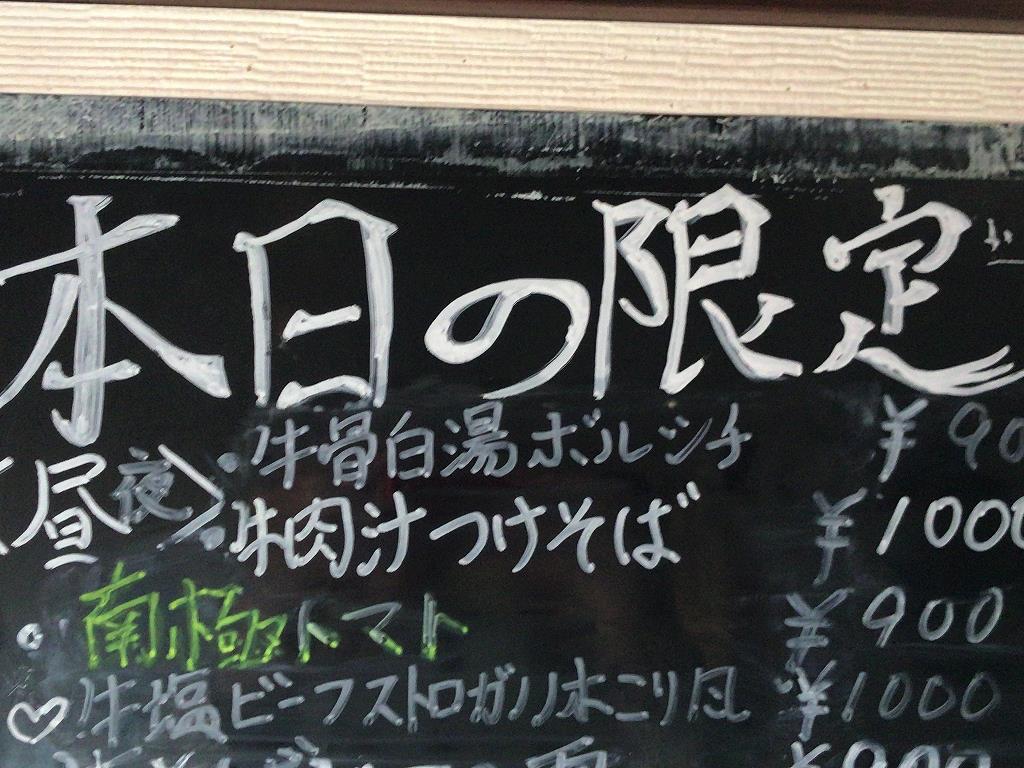 本日の限定
〈昼夜〉・牛骨白湯ボルシチ ¥90
・牛肉汁つけそば ¥1000
・南極トマト ¥900
♡牛塩ビーフストロガノ木こり風 ¥1000